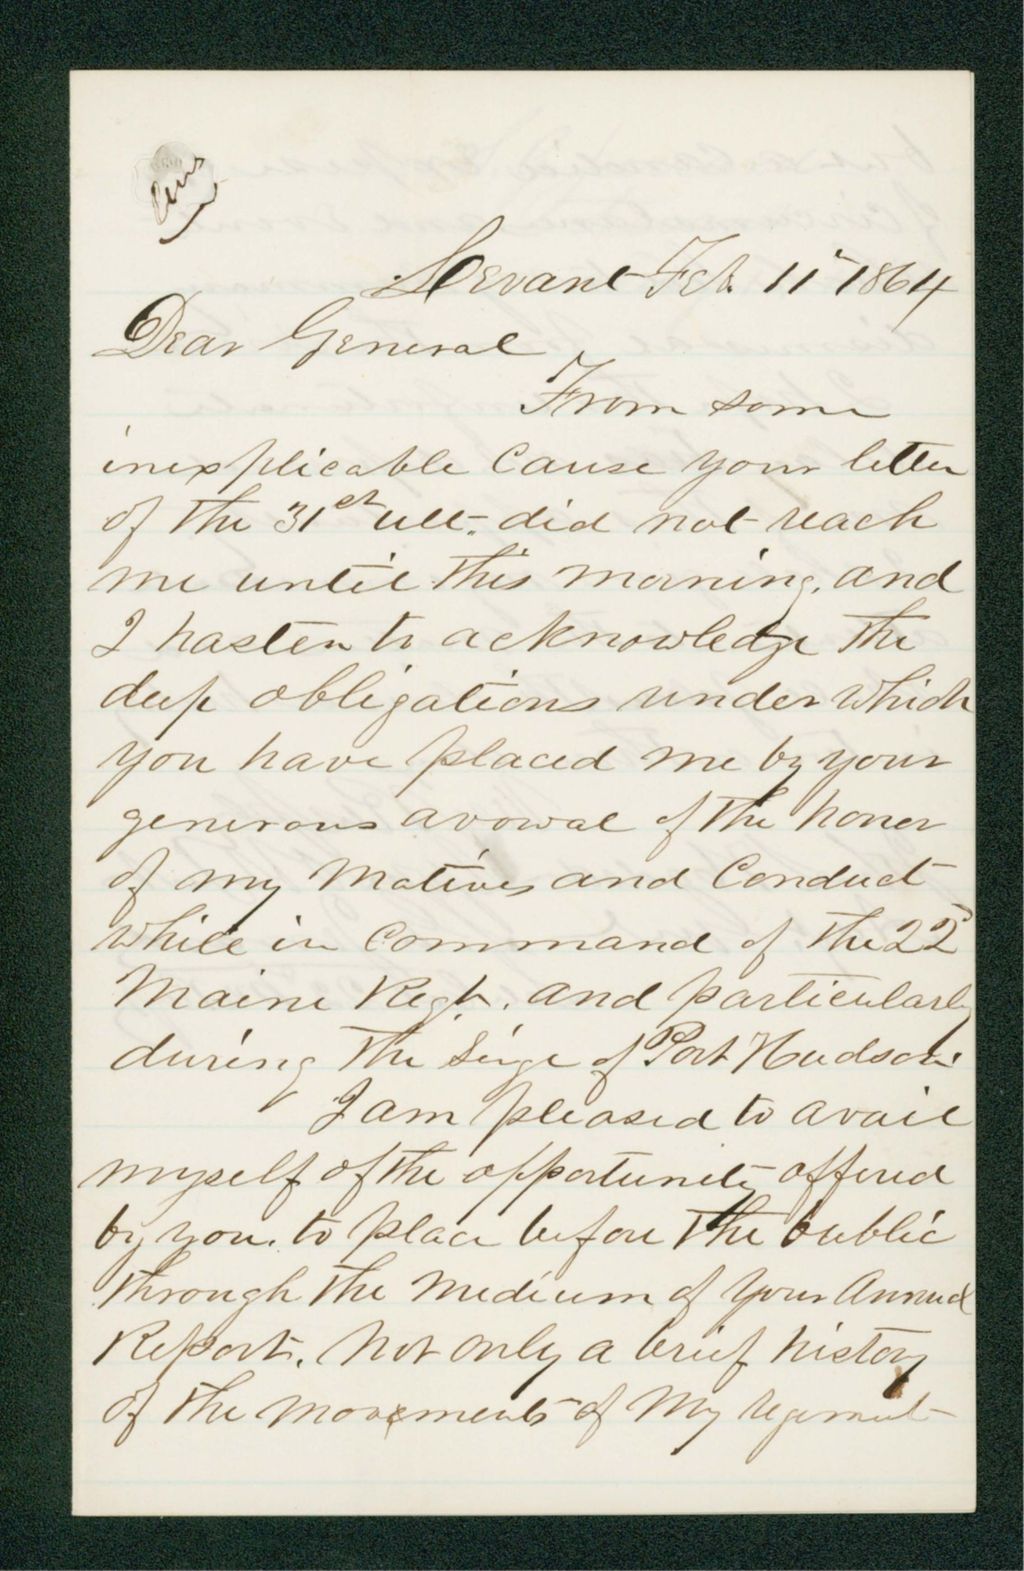 Ans
Levant Feb. 11" 1864
Dear General
From some
inexplicable Cause your letter
of the 31st ult. did not reach
me until this morning, and
I hasten to acknowledge the
deep obligations under which
you have placed me by your
generous avowal of the honor
of my Motives and Conduct
while in Command of the 22d
Maine Regt. and particularly
during the Seige of Port Hudson.
I am pleased to avail
myself of the opportunity offered
by you. to place before the public
through the Medium of your Annual
Report, not only a brief history
of the movements of My regiment